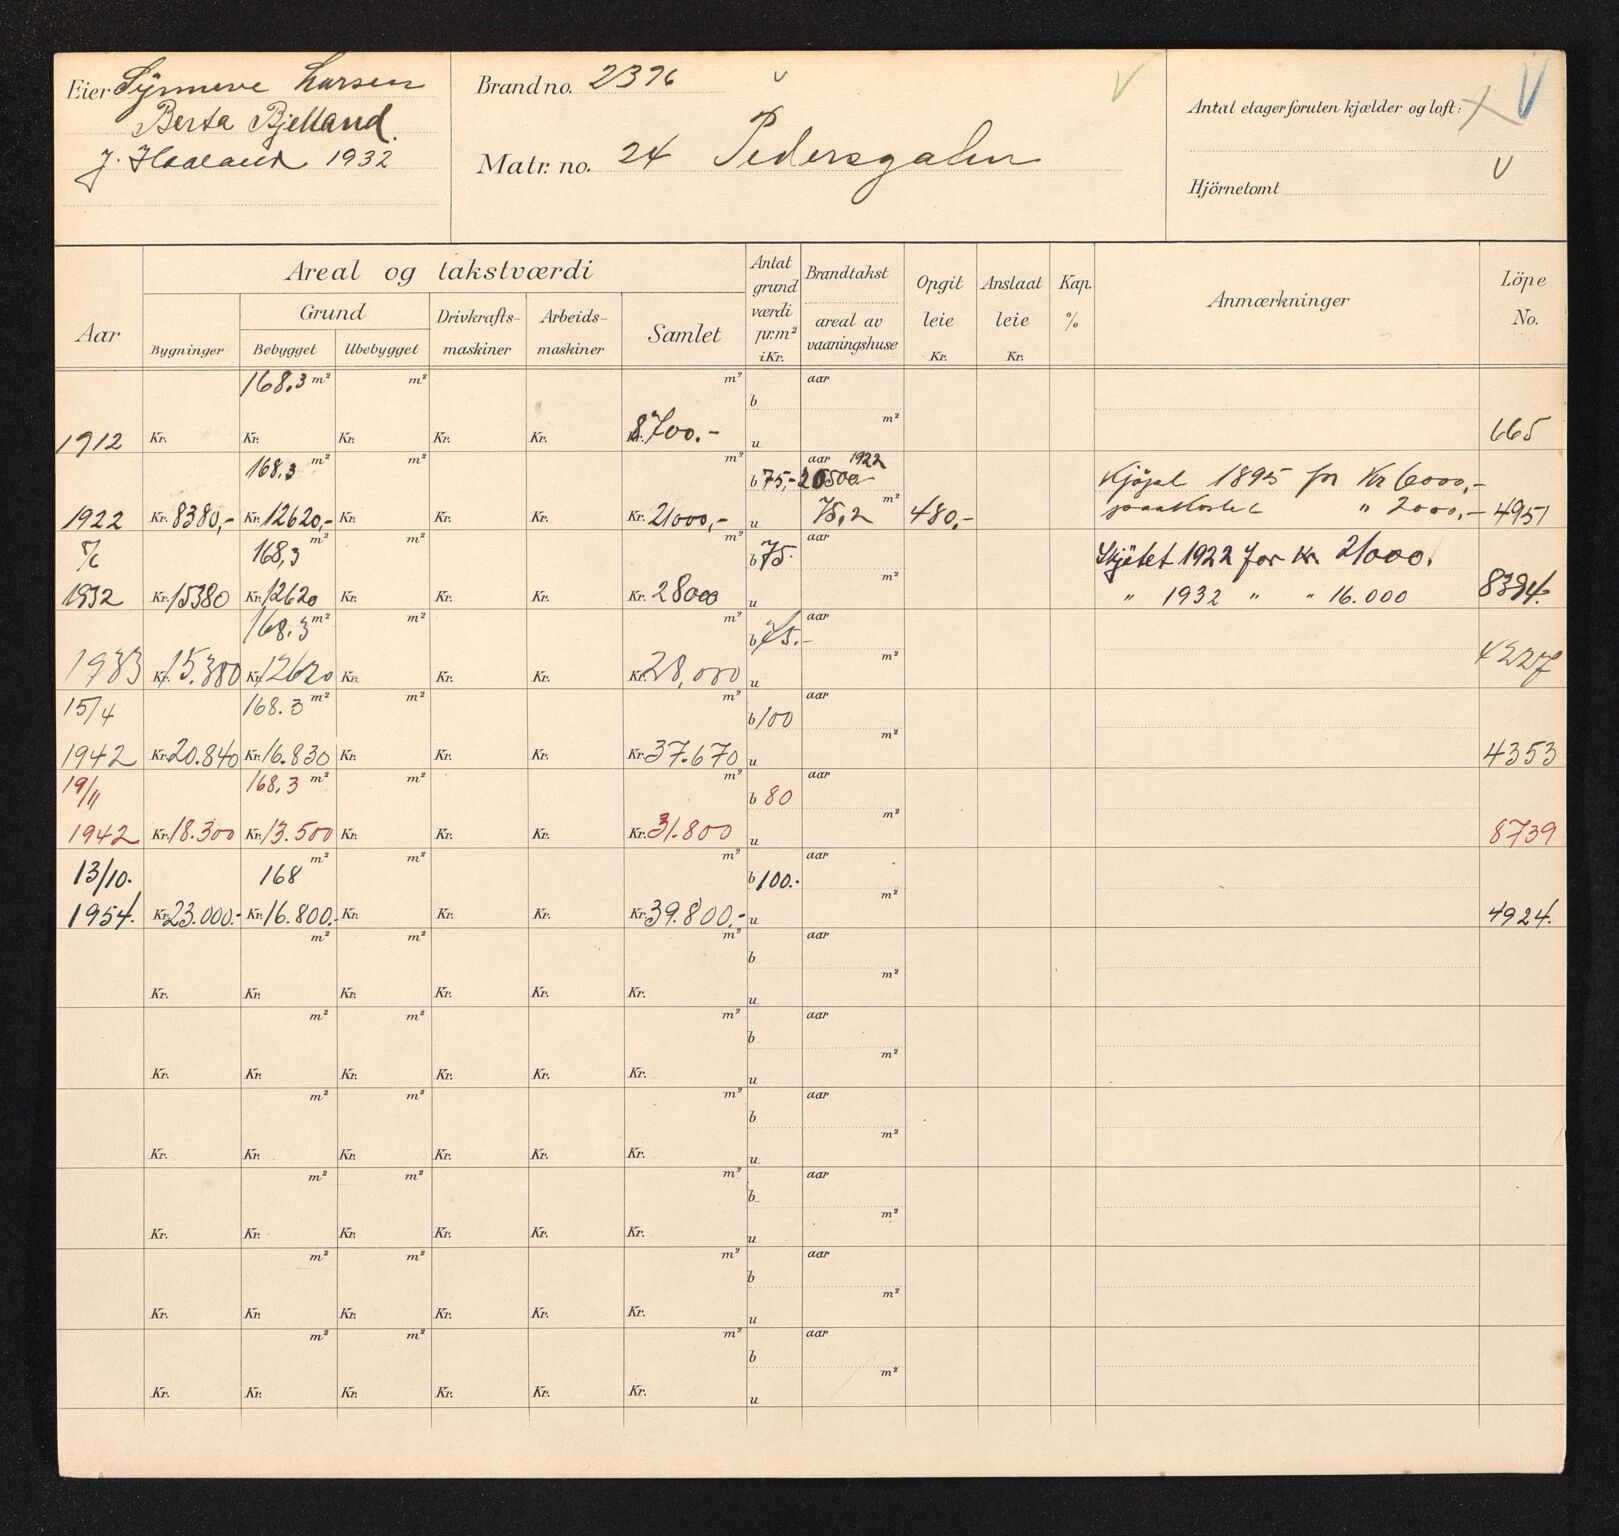 Eier Synneve Larsen
Berta Bjelland.
J. Haaland 1932
Brand no. 2396
Matr. no. 24 Pedersgaten
Antal etager foruten kjælder og loft:
Hjörnetomt
Aar
Areal og takstværdi
Bygninger
Grund
Bebygget Ubebygget
Drivkrafts-maskiner
Arbeids-maskiner
Samlet
Antat grund værdi pr.m² i Kr.
Brandtakst
areal av vaaningshuse
Opgit leie Kr.
Anslaat leie Kr.
Kap. %
Anmærkninger
Löpe No.
168.3 m² m² m² aar
b m²
1912 Kr. Kr. Kr. Kr. Kr. Kr. 8700.- u 665
168,3 m² m² m² aar 1922
b 75,- 20500.- Kjöpt 1895 for Kr 6000,-
1922 Kr. 8380,- Kr. 12620,- Kr. Kr. Kr. Kr. 21000,- u 75,2 m² 480,- paakostet " 2000,- 4951
5/6 168,3 m² m² m² aar
b 75. m² Skjötet 1922 for Kr 21000.
1932 Kr. 15380 Kr. 12620 Kr. Kr. Kr. Kr. 28000 u " 1932 " " 16.000 8394.
168.3 m² m² m² aar
b 75.- m²
1933 Kr. 15.380 Kr. 12620 Kr. Kr. Kr. Kr. 28,000 u 4227
15/4 168.3 m² m² m² aar
b 100 m²
1942 Kr. 20.840 Kr. 16.830 Kr. Kr. Kr. Kr. 37.670 u 4353
19/11 168.3 m² m² m² aar
b 80 m²
1942 Kr. 18.300 Kr. 13.500 Kr. Kr. Kr. Kr. 31.800 u 8739
13/10. 168 m² m² m² aar
b 100.- m²
1954. Kr. 23.000.- Kr. 16.800.- Kr. Kr. Kr. Kr. 39.800.- u 4924.
m² m² m² aar
b m²
Kr. Kr. Kr. Kr. Kr. Kr. u
m² m² m² aar
b m²
Kr. Kr. Kr. Kr. Kr. Kr. u
m² m² m² aar
b m²
Kr. Kr. Kr. Kr. Kr. Kr. u
m² m² m² aar
b m²
Kr. Kr. Kr. Kr. Kr. Kr. u
m² m² m² aar
b m²
Kr. Kr. Kr. Kr. Kr. Kr. u
m² m² m² aar
b m²
Kr. Kr. Kr. Kr. Kr. Kr. u